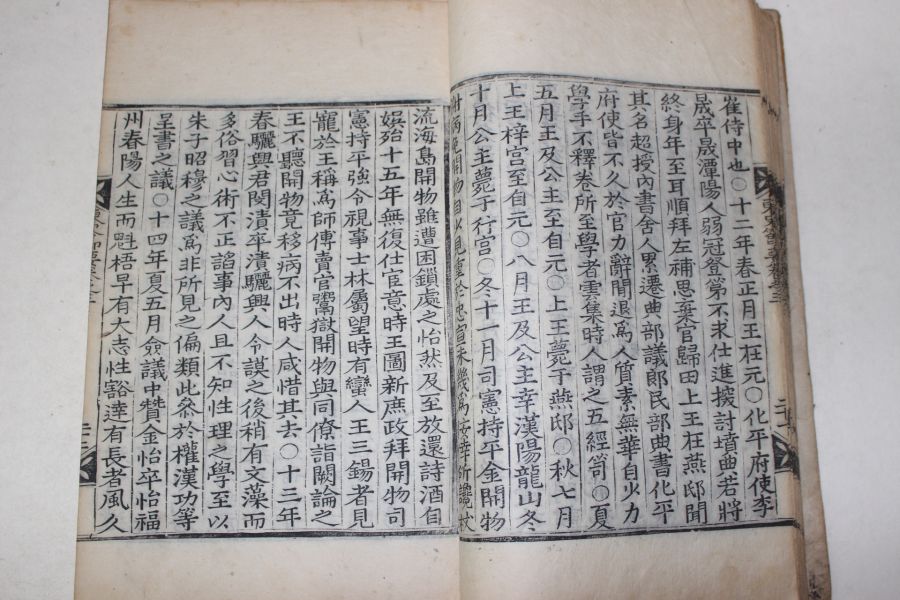 崔侍中也○十二年春正月王在元○化平府使李
晟卒晟潭陽人弱冠登第不求仕進搜討墳典若將
終身年至耳順拜左補思棄官歸田上王在燕邸聞
其名超授內書舍人累遷典部議郞民部典書化平
府使皆不久於官力辭閒退爲人質素無華自少力
學手不釋卷所至學者雲集時人謂之五經笥○夏
五月王及公主至自元○上王薨于燕邸○秋七月
上王梓宮至自元○八月王及公主幸漢陽龍山冬
十月公主薨于行宮○冬十一月司憲持平金開物
見
流海島開物雖遭困鎖處之怡然及至放還詩酒自
娛殆十五年無復仕宦意時王圖新庶政拜開物司
憲持平強令視事士林屬望時有蠻人王三錫者見
寵於王稱爲師傅賣官鬻獄開物與同僚詣闕論之
王不聽開物竟移病不出時人咸惜其去○十三年
春驪興君閔漬卒漬驪興人令謨之後稍有文藻而
多俗習心術不正諂事內人且不知性理之學至以
朱子昭穆之議爲非所見之偏類此參於權漢功等
呈書之議○十四年夏五月僉議中贊金怡卒怡福
州春陽人生而魁梧早有大志性豁達有長者風久